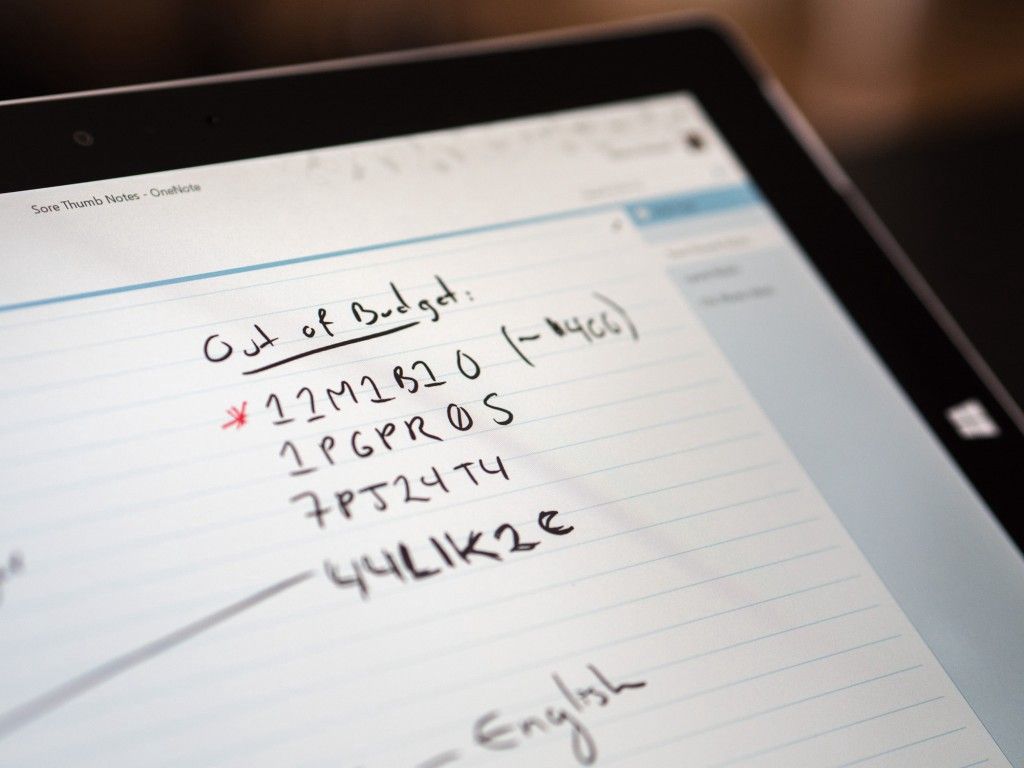 Sore Thumb Notes - OneNote
Out of Budget:
* 11M1B10
1PGPR0S
7PJ24T4
44L1K2E
English